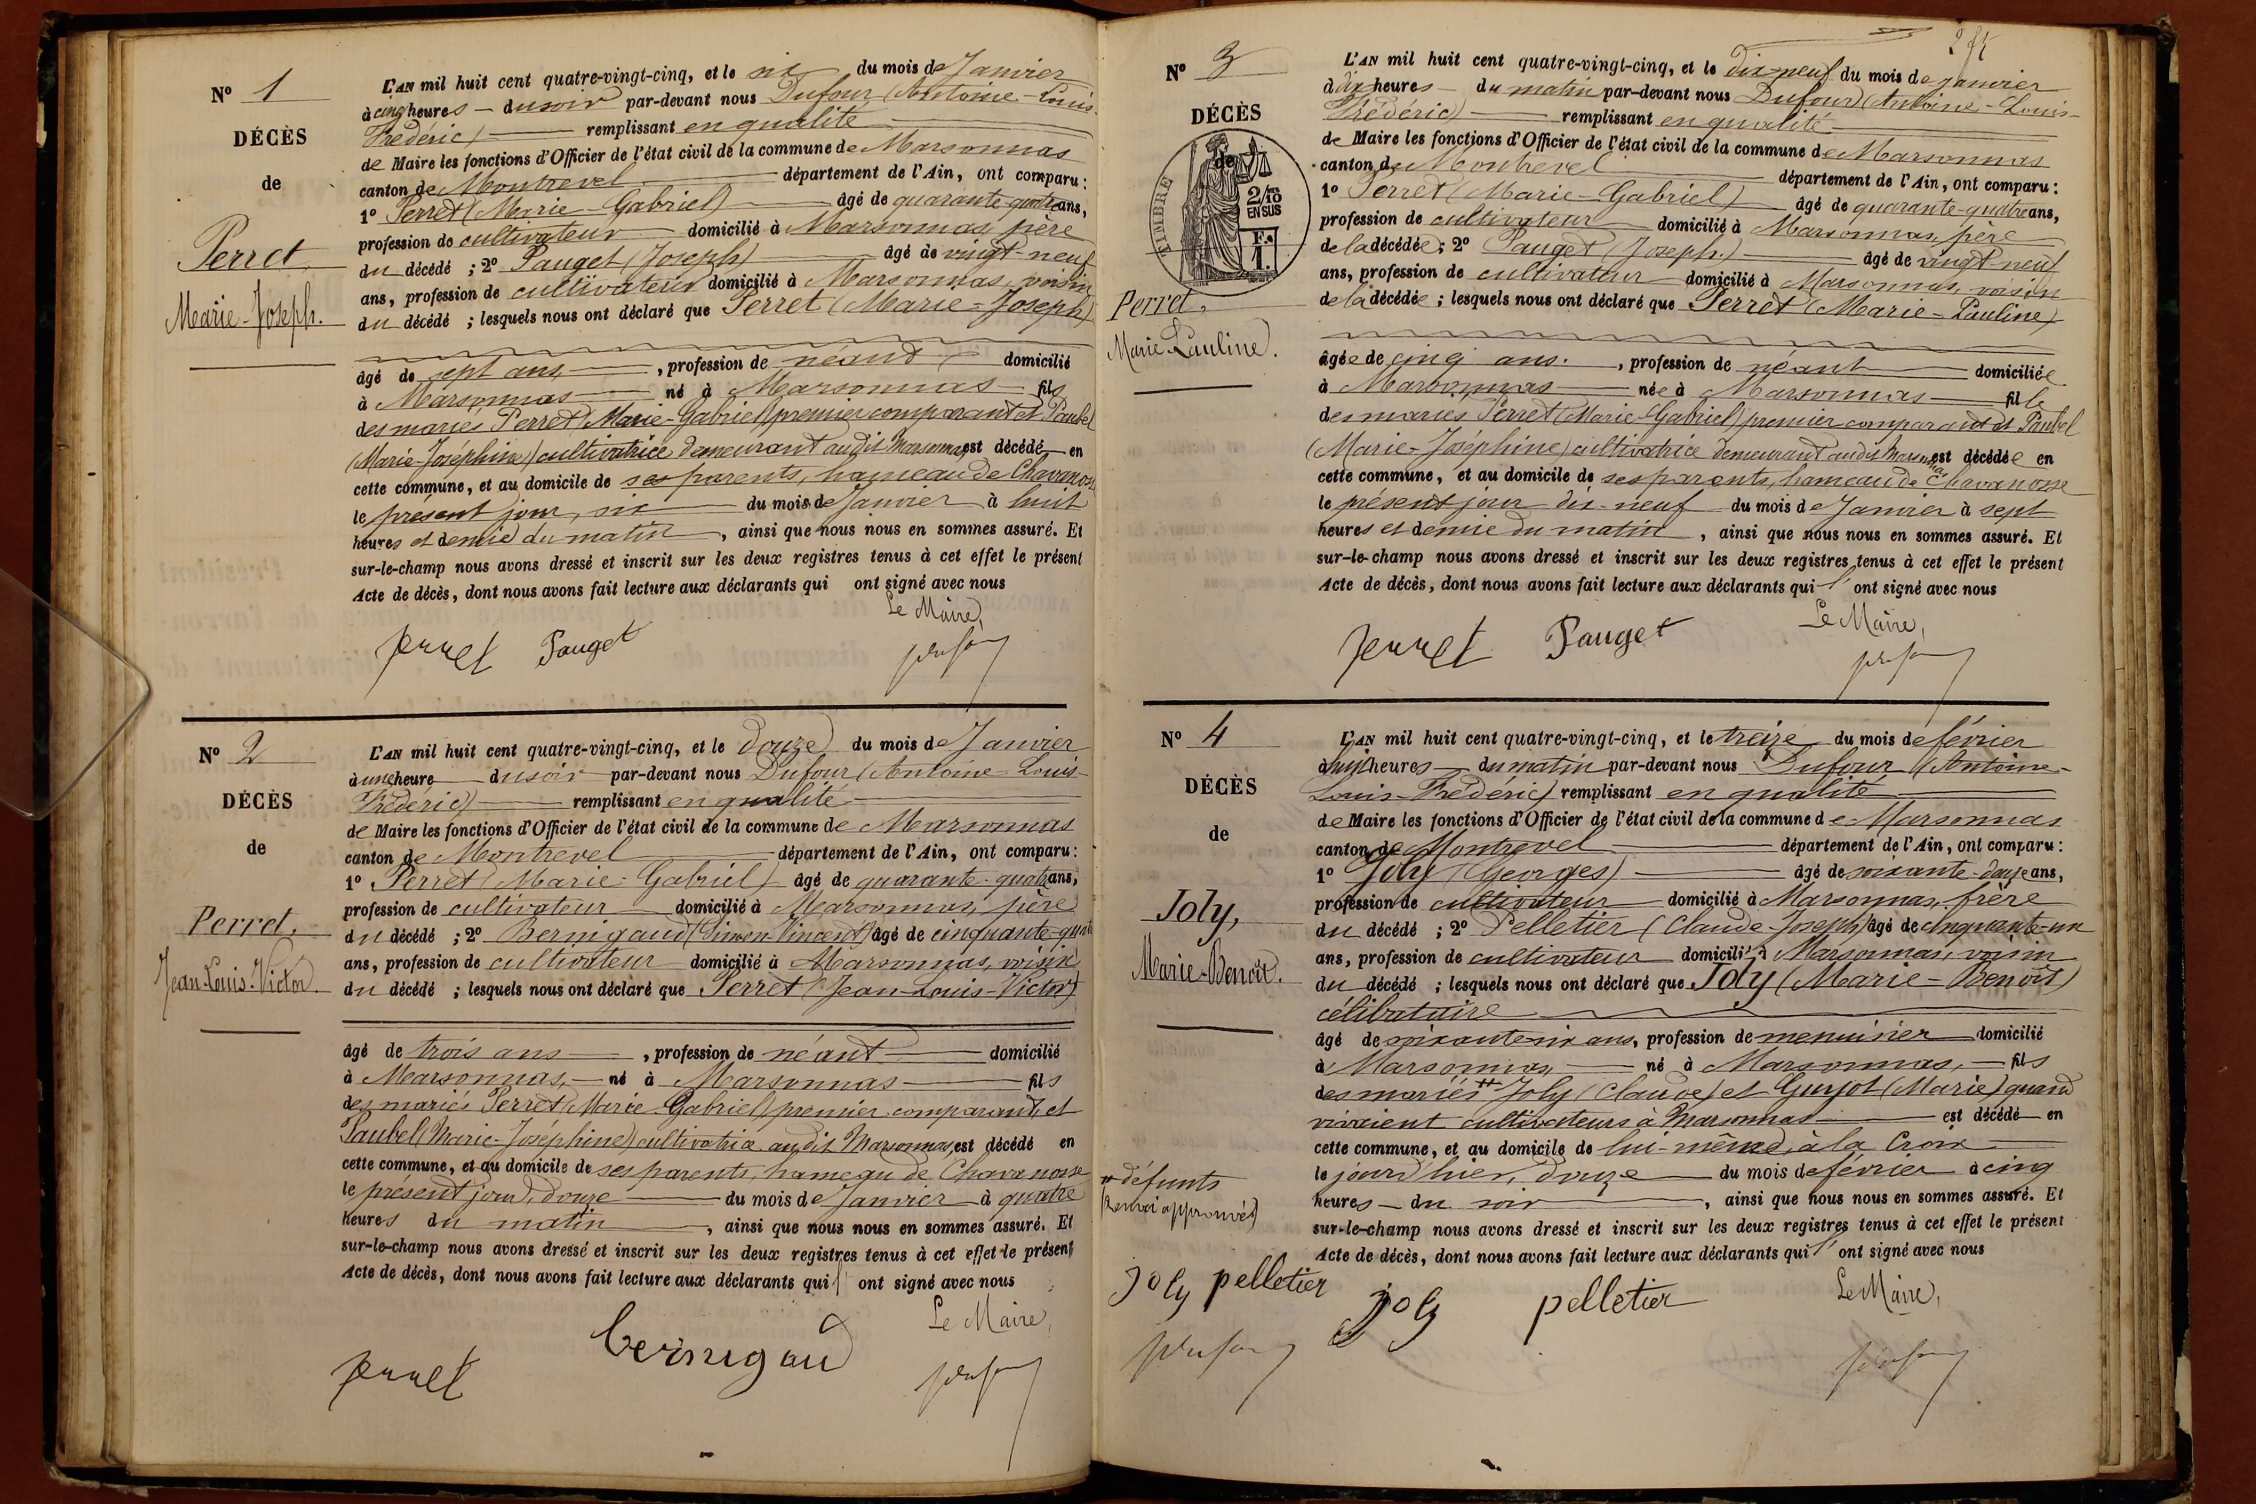 N° 1
DÉCÈS
de
Perret,
Marie-Joseph.
L'AN mil huit cent quatre-vingt-cinq, et le six du mois de Janvier
à cinq heures du soir par-devant nous Dufour (Antoine-Louis-
Frédéric) remplissant en qualité
de Maire les fonctions d'Officier de l'état civil de la commune de Marsonnas
canton de Montrevel département de l'Ain, ont comparu :
1° Perret (Marie-Gabriel) âgé de quarante-quatre ans,
profession de cultivateur domicilié à Marsonnas, père
du décédé ; 2° Pauget (Joseph) âgé de vingt-neuf
ans, profession de cultivateur domicilié à Marsonnas, voisin
du décédé ; lesquels nous ont déclaré que Perret (Marie-Joseph)
âgé de sept ans, , profession de néant domicilié
à Marsonnas né à Marsonnas fils
des mariés Perret (Marie-Gabriel) premier comparant et Paubel
(Marie-Joséphine) cultivatrice demeurant audit Marsonnas est décédé en
cette commune, et au domicile de ses parents, hameau de Chavanosse
le présent jour, six du mois de Janvier à huit
heures et demie du matin , ainsi que nous nous en sommes assuré. Et
sur-le-champ nous avons dressé et inscrit sur les deux registres tenus à cet effet le présent
Acte de décès, dont nous avons fait lecture aux déclarants qui ont signé avec nous
Le Maire,
perret Pauget
N° 2
DÉCÈS
de
Perret,
Jean-Louis-Victor.
L'AN mil huit cent quatre-vingt-cinq, et le douze du mois de Janvier
à une heure du soir par-devant nous Dufour (Antoine-Louis-
Frédéric) remplissant en qualité
de Maire les fonctions d'Officier de l'état civil de la commune de Marsonnas
canton de Montrevel département de l'Ain, ont comparu :
1° Perret (Marie-Gabriel) âgé de quarante-quatre ans,
profession de cultivateur domicilié à Marsonnas, père
du décédé ; 2° Bernigaud (Simon-Vincent) âgé de cinquante-quatre
ans, profession de cultivateur domicilié à Marsonnas, voisin
du décédé ; lesquels nous ont déclaré que Perret (Jean-Louis-Victor)
âgé de trois ans , profession de néant domicilié
à Marsonnas, né à Marsonnas fils
des mariés Perret (Marie-Gabriel) premier comparant, et
Paubel (Marie-Joséphine) cultivatrice audit Marsonnas, est décédé en
cette commune, et au domicile de ses parents, hameau de Chavanosse
le présent jour, douze du mois de Janvier à quatre
heures du matin , ainsi que nous nous en sommes assuré. Et
sur-le-champ nous avons dressé et inscrit sur les deux registres tenus à cet effet le présent
Acte de décès, dont nous avons fait lecture aux déclarants qui ont signé avec nous
Le Maire,
perret bernigaud
N° 3
DÉCÈS
de
TIMBRE
2/10 EN SUS
Perret,
Marie-Pauline.
L'AN mil huit cent quatre-vingt-cinq, et le dix-neuf du mois de Janvier
à dix heures du matin par-devant nous Dufour (Antoine-Louis-
Frédéric) remplissant en qualité
de Maire les fonctions d'Officier de l'état civil de la commune de Marsonnas
canton de Montrevel département de l'Ain, ont comparu :
1° Perret (Marie-Gabriel) âgé de quarante-quatre ans,
profession de cultivateur domicilié à Marsonnas, père
de la décédée ; 2° Pauget (Joseph) âgé de vingt-neuf
ans, profession de cultivateur domicilié à Marsonnas, voisin
de la décédée ; lesquels nous ont déclaré que Perret (Marie-Pauline)
âgée de cinq ans. , profession de néant domiciliée
à Marsonnas née à Marsonnas fille
des mariés Perret (Marie-Gabriel) premier comparant et Paubel
(Marie-Joséphine) cultivatrice demeurant audit Marsonnas est décédée en
cette commune, et au domicile de ses parents, hameau de Chavanosse
le présent jour dix-neuf du mois de Janvier à sept
heures et demie du matin , ainsi que nous nous en sommes assuré. Et
sur-le-champ nous avons dressé et inscrit sur les deux registres tenus à cet effet le présent
Acte de décès, dont nous avons fait lecture aux déclarants qui ont signé avec nous
Le Maire,
perret Pauget
N° 4
DÉCÈS
de
Joly,
Marie-Benoît.
L'AN mil huit cent quatre-vingt-cinq, et le treize du mois de février
à huit heures du matin par-devant nous Dufour (Antoine-
Louis-Frédéric) remplissant en qualité
de Maire les fonctions d'Officier de l'état civil de la commune de Marsonnas
canton de Montrevel département de l'Ain, ont comparu :
1° Joly (Georges) âgé de soixante-douze ans,
profession de cultivateur domicilié à Marsonnas, frère
du décédé ; 2° Pelletier (Claude-Joseph) âgé de cinquante-un
ans, profession de cultivateur domicilié à Marsonnas, voisin
du décédé ; lesquels nous ont déclaré que Joly (Marie-Benoît)
célibataire
âgé de soixante-six ans, profession de menuisier domicilié
à Marsonnas, né à Marsonnas, fils
des mariés # Joly (Claude) et Guyot (Marie) quand
vivaient cultivateurs à Marsonnas est décédé en
cette commune, et au domicile de lui-même, à la Croix
le jour d'hier, douze du mois de février à cinq
heures du soir , ainsi que nous nous en sommes assuré. Et
sur-le-champ nous avons dressé et inscrit sur les deux registres tenus à cet effet le présent
Acte de décès, dont nous avons fait lecture aux déclarants qui ont signé avec nous
# défunts
(Renvoi approuvé)
joly pelletier
Le Maire,
joly pelletier